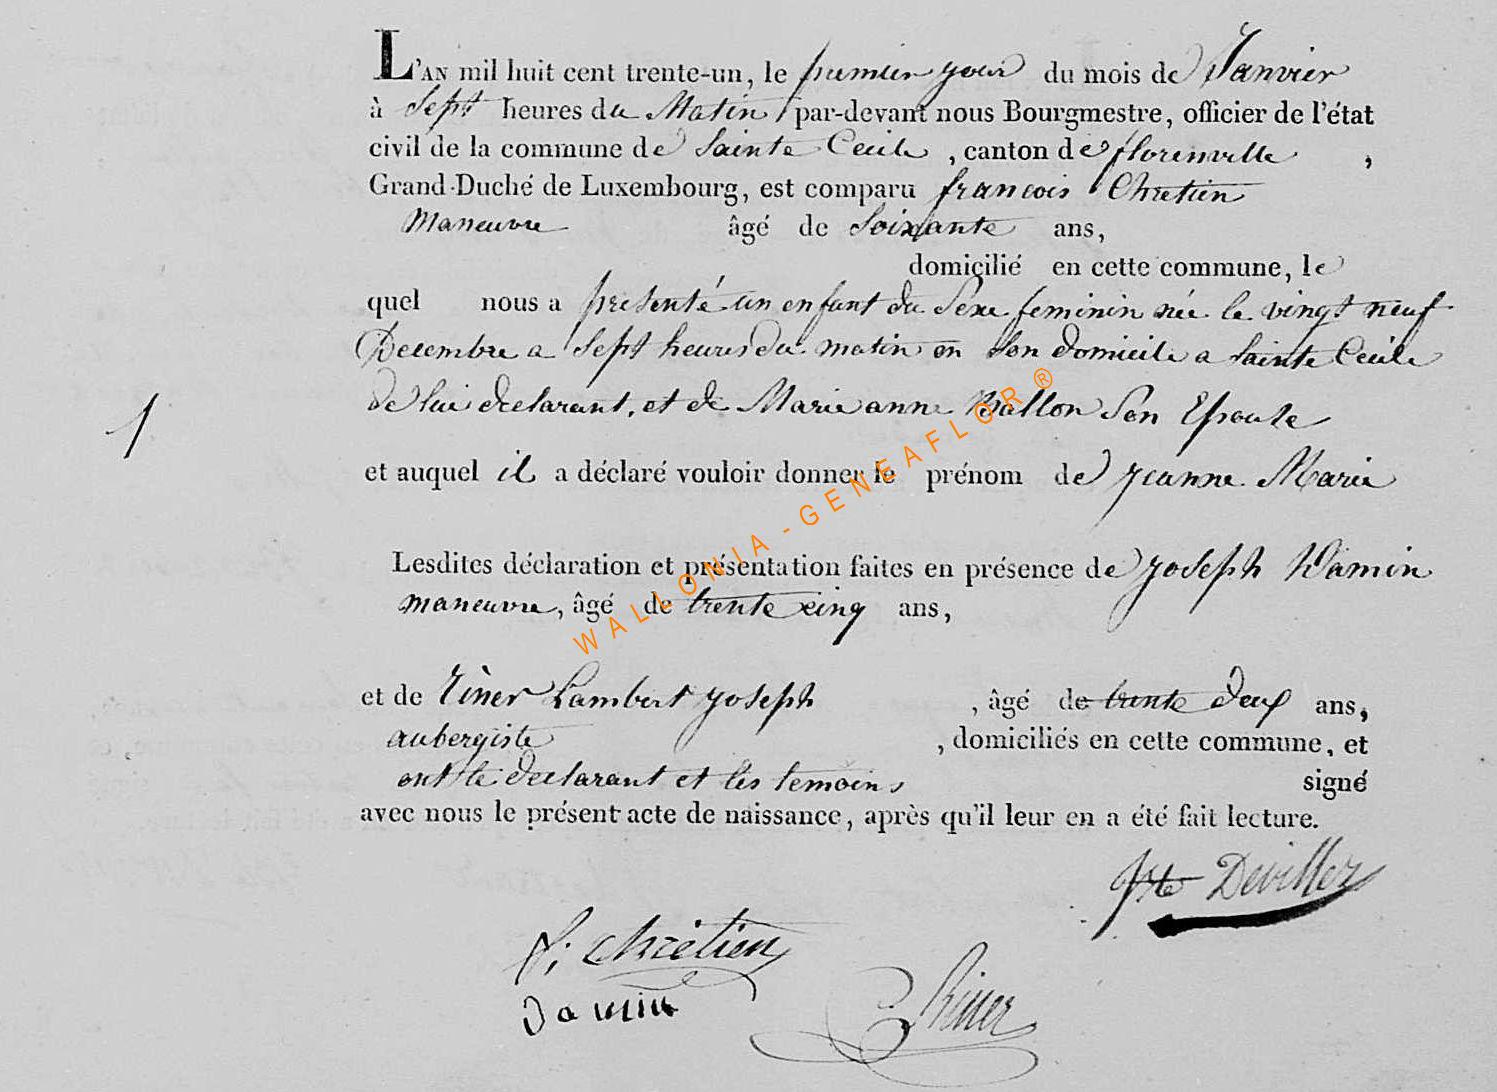 L'AN mil huit cent trente-un, le premier jour du mois de Janvier
à Sept heures du Matin par-devant nous Bourgmestre, officier de l'état
civil de la commune de Sainte Cecile, canton de florenville,
Grand-Duché de Luxembourg, est comparu francois Chretien
Maneuvre âgé de Soixante ans,
domicilié en cette commune, le
quel nous a presenté un enfant du Sexe feminin née le vingt neuf
Decembre a Sept heures du matin en Son domicile a Sainte Cecile
de lui declarant, et de Marie anne Ballon Son Epouse
1
et auquel il a déclaré vouloir donner le prénom de Jeanne Marie
Lesdites déclaration et présentation faites en présence de Joseph Damin
maneuvre, âgé de trente cinq ans,
et de Riner Lambert Joseph, âgé de trente deux ans,
aubergiste, domiciliés en cette commune, et
ont le declarant et les temoins signé
avec nous le présent acte de naissance, après qu'il leur en a été fait lecture.
Devillez
f; chrétien
Damin
Riner
WALLONIA-GENEAFLOR®